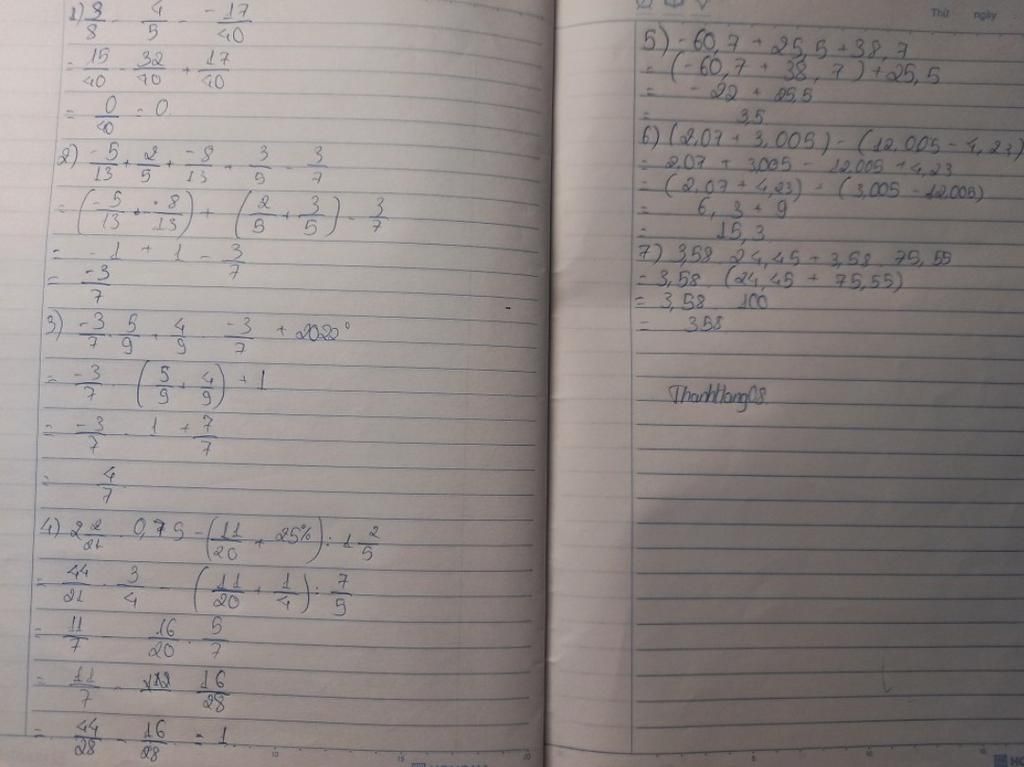 1) 3/8 - 4/5 - -17/40
= 15/40 - 32/40 + 17/40
= 0/40 = 0
2) -5/13 + 2/5 + -8/13 + 3/5 - 3/7
= (-5/13 + -8/13) + (2/5 + 3/5) - 3/7
= -1 + 1 - 3/7
= -3/7
3) -3/7 . 5/9 + 4/9 . -3/7 + 2020°
= -3/7 . (5/9 + 4/9) + 1
= -3/7 . 1 + 7/7
= 4/7
4) 2 2/21 . 0,75 - (11/20 + 25%) : 1 2/5
= 44/21 . 3/4 - (11/20 + 1/4) : 7/5
= 11/7 - 16/20 . 5/7
= 11/7 - 16/28
= 44/28 - 16/28 = 1
Thứ ngày
5) -60,7 + 25,5 + 38,7
= (-60,7 + 38,7) + 25,5
= -22 + 25,5
= 3,5
6) (2,07 + 3,005) - (12,005 - 4,23)
= 2,07 + 3,005 - 12,005 + 4,23
= (2,07 + 4,23) - (3,005 - 12,005)
= 6,3 + 9
= 15,3
7) 3,58 . 24,45 + 3,58 . 75,55
= 3,58 . (24,45 + 75,55)
= 3,58 . 100
= 358
ThanhHang08.